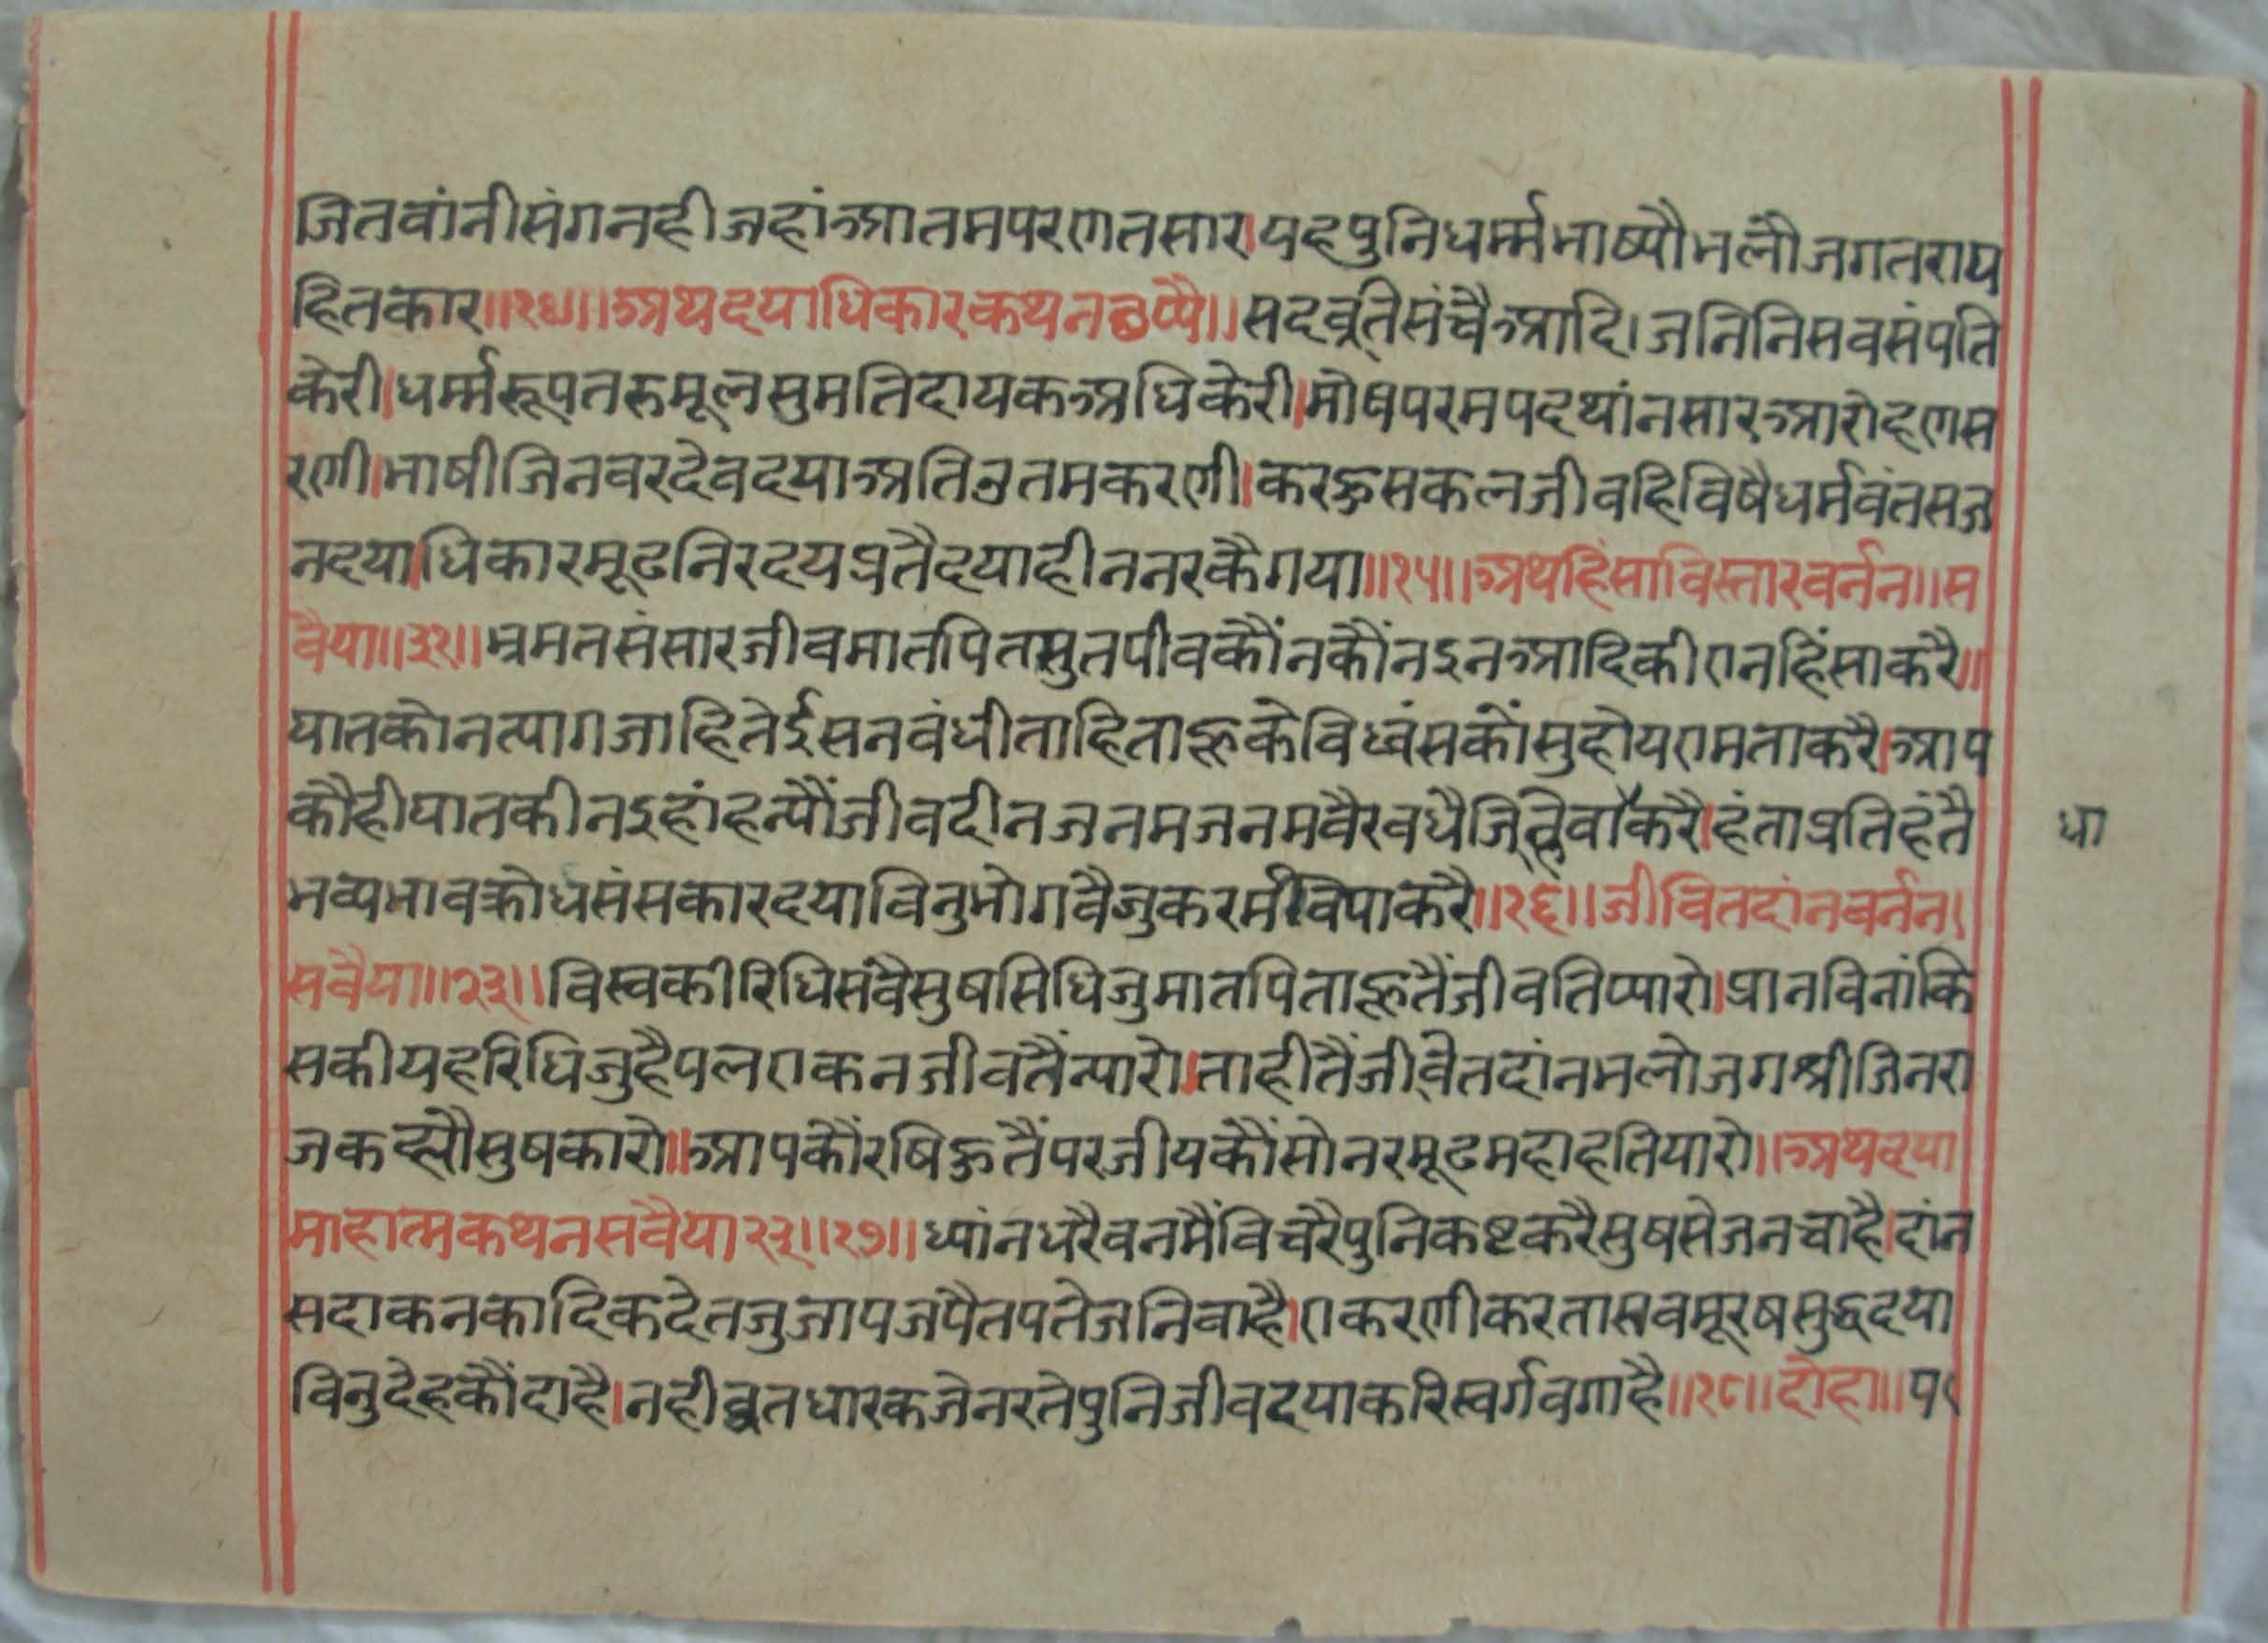 जितवांनीसंगनहीजहांआतमपरणतसार।यहपुनिधर्म्मभाष्यौभलौजगतराय
हितकार॥१४॥अथदयाधिकारकथनछप्पै॥सदव्रतिसंचैआदि।जनिनिसवसंपति
केरी।धर्म्मरूपतरुमूलसुमतिदायकअधिकेरी।मोषपरमपदथांनसारआरोहणस
रणी।भाषीजिनवरदेवदयाअतिउतमकरणी।करऊसकलजीवहिविषैधर्मवंतसज
नदया।धिकारमूढनिरदयप्रतैदयाहीननरकैगया॥१५॥अथहिंसाविस्तारवर्नन॥स
वैया॥३१॥भ्रमतसंसारजीवमातपितसुतपीवकौंनकौंनइनआदिकीएनहिंसाकरै॥
घातकोनत्यागजाहितेईसनवंधीताहिताहूकेविध्वंसकौंसुहोयएमताकरै।आप
कौहीघातकीनइहांहन्यौंजीवदीनजनमजनमवैरवधैजित्नेवाकरै।हंताप्रतिहंतै
भव्यभावक्रोधसंसकारदयाविनुभोगवैजुकरमविपाकरै॥१६॥जीवितदांनवर्नन।
सवैया॥२३॥विस्वकीरिधिसंवैसुषसिधिजुमातपिताहूतैंजीवतिप्यारो।प्रानविनांकि
सकीयहरिधिजुहैपलएकनजीवतैंन्यारो।ताहीतैंजीवेतदांनभलोजगश्रीजिनरा
जकह्यौसुषकारो॥आपकौंरषिऊतैंपरजीयकौंसोनरमूढमहाहतियारो॥अथव्या
माहात्मकथनसवैया२३॥१७॥ध्यांनधरैवनमैंविचरैपुनिकष्टकरैसुषसेजनचाहै।दांन
सदाकनकादिकदेतजुजापजपैतपतेजनिवाहै।एकरणीकरतासवमूरषसुद्धदया
विनुदेहकौंदाहै।नहीव्रतधारकजेनरतेपुनिजीवदयाकरिस्वर्गवगाहै॥१८॥दोहा॥प
धा